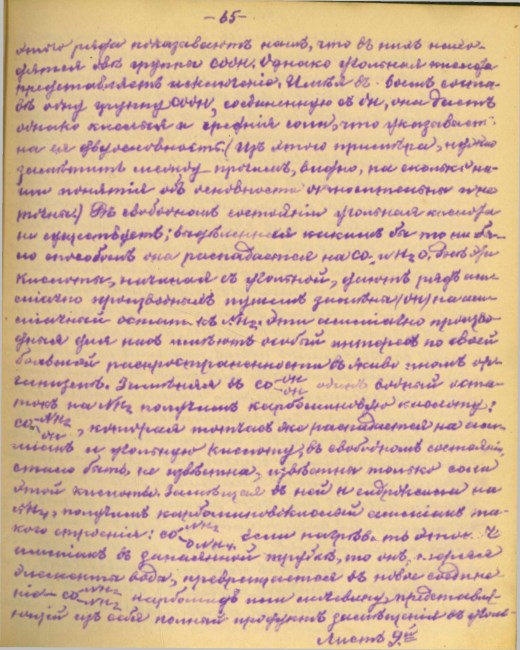 -65-
этого ряда показываютъ намъ, что въ нихъ нахо-
дятся двѣ группы COOH. Однако угольная кислота
представляетъ исключеніе. Имѣя въ своемъ соста-
вѣ одну группу COOH, соединенную съ OH, она даетъ
однако кислыя и среднія соли, что указываетъ
на ея двуосновность. (Изъ этого примѣра, нужно
замѣтить между прочимъ, видно, на сколько на-
ши понятія объ основности относительны и не
точны.) Въ свободномъ состояніи угольная кислота
не существуетъ; выдѣленная какимъ бы то ни бы-
ло способомъ она распадается на CO₂ и H₂O. Двѣ
кислоты, начиная съ угольной, даютъ рядъ ам-
міачно производныхъ путемъ замѣны (OH) на ам-
міачный остатокъ NH₂. Эти амміачно производ-
ныя для насъ имѣютъ особый интересъ по своей
большой распространенности въ животномъ ор-
ганизмѣ. Замѣняя въ CO-OH-OH одинъ водный оста-
токъ на NH₂ получимъ карбаминовую кислоту:
CO-NH₂-OH, которая тотчасъ же распадается на ам-
міакъ и угольную кислоту; въ свободномъ состояніи,
стало быть, не извѣстна, извѣстны только соли
этой кислоты. Замѣщая въ ней H гидроксила на
NH₄, получимъ карбаминовокислый амміакъ та-
кого строенія: CO-NH₂-ONH₄. Если нагрѣвать этотъ
амміакъ въ запаянной трубкѣ, то онъ, теряя
элементы воды, превращается въ новое соедине-
ніе - CO-NH₂-NH₂ карбамидъ или мочевину, представля-
ющей изъ себя полный продуктъ замѣщенія въ уголь-
Листъ 9.й